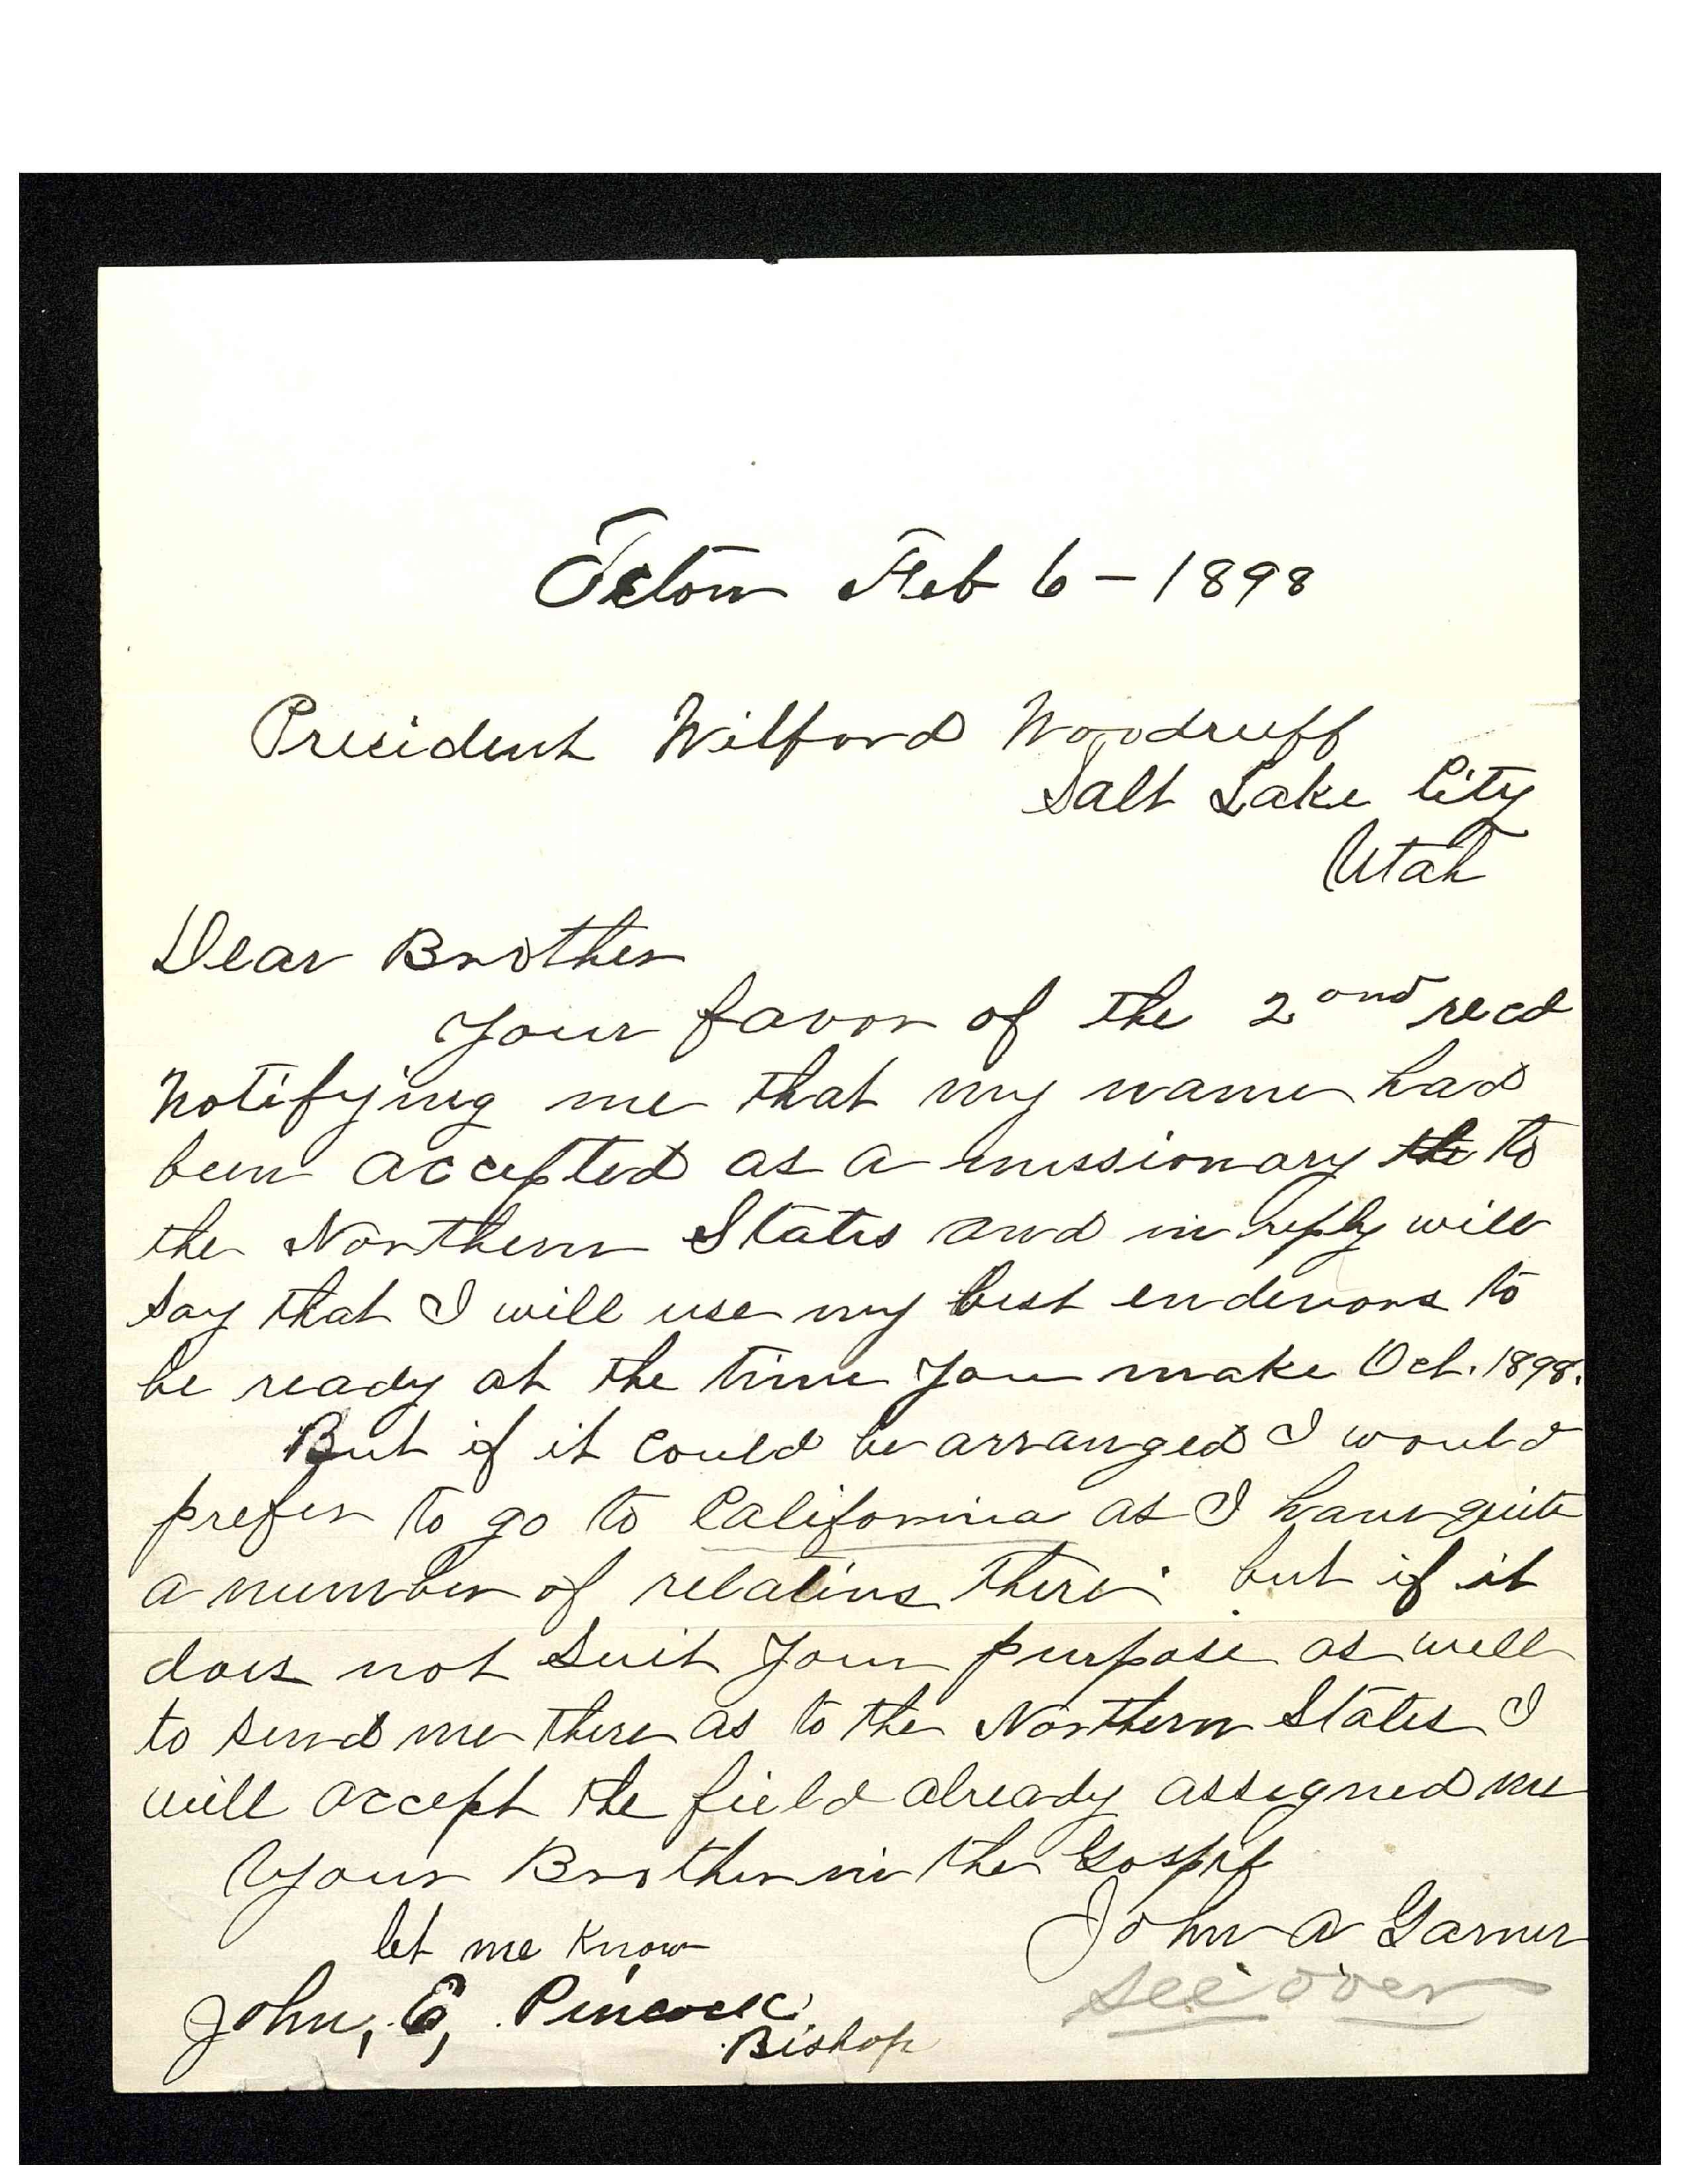 Teton Feb 6 - 1898
President Wilford Woodruff
Salt Lake City
Utah
Dear Brother
Your favor of the 2ond recd
Notifying me that my name had
been accepted as a missionary the to
the Northern States and in reply will
say that I will use my best endevors to
be ready at the time you make Oct. 1898.
But if it could be arranged I would
prefer to go to California as I have quite
a number of relatives there. but if it
does not suit your purpose as well
to send me there as to the Northern States I
will accept the field already assigned me
Your Brother in the Gospel
John A Garner
let me know
see over
John, E, Pincock
Bishop